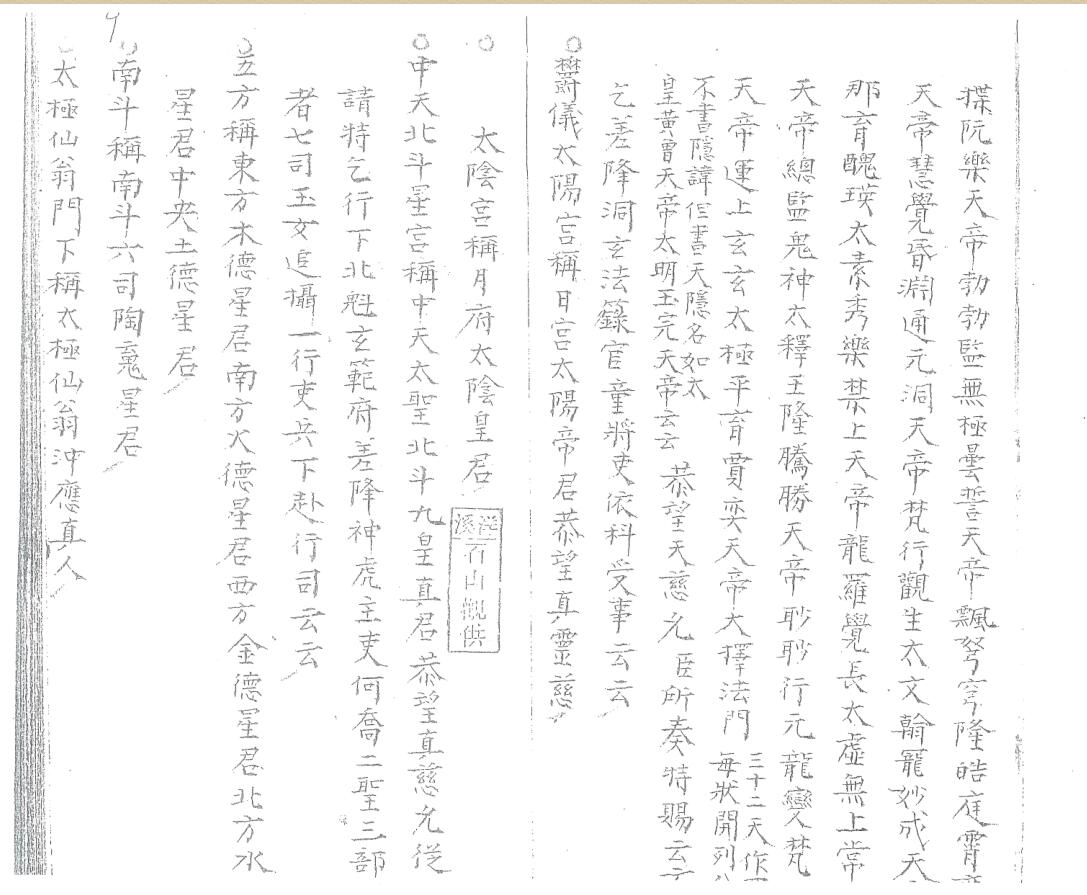 揲阮樂天帝勃勃監無極曇誓天帝飄弩穹隆皓庭霄
天帝慧覺昏淵通元洞天帝梵行觀生太文翰寵妙成天
那育醜瑛太素秀樂禁上天帝龍羅覺長太虛無上常
天帝總監鬼神太釋王隆騰勝天帝眇眇行元龍變梵
天帝運上玄玄太極平育賈奕天帝大擇法門
三十二天作
每狀開列
不書隱諱但書天隱名如太
皇黃曾天帝太明玉完天帝云云
恭望天慈允臣所奏特賜云
乞差降洞玄法籙官童將吏依科受事云云
○欝儀太陽宮稱日宮太陽帝君恭望真靈慈
○太陰宮稱月府太陰皇君
石山觀供
○中天北斗星宮稱中天太聖北斗九皇真君恭望真慈允從
請特乞行下北魁玄範府差降神虎主吏何喬二聖三部
者七司玉女追攝一行吏兵下赴行司云云
○五方稱東方木德星君南方火德星君西方金德星君北方水
星君中央土德星君
○南斗稱南斗六司陶魂星君
○太極仙翁門下稱太極仙翁沖應真人